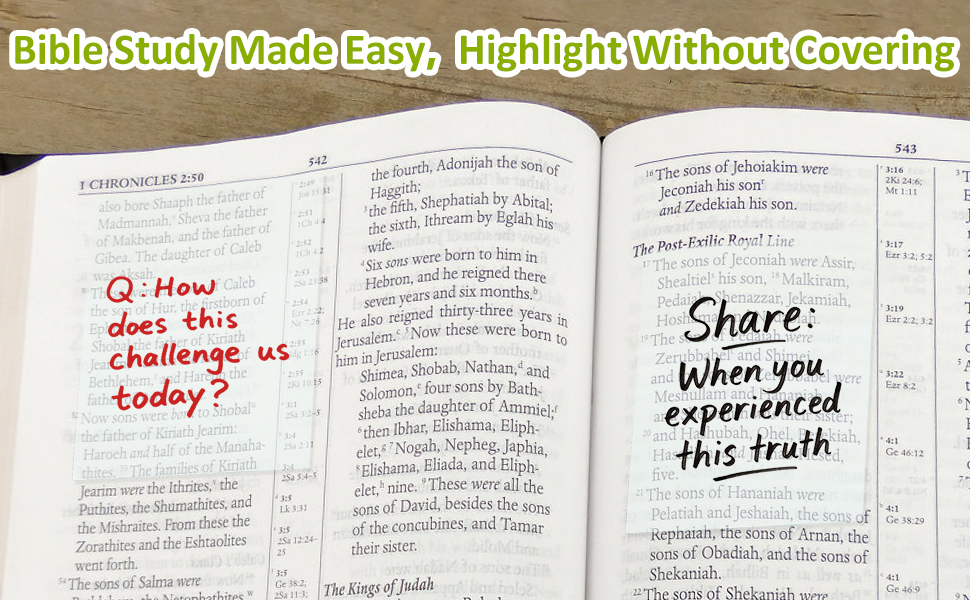 Bible Study Made Easy, Highlight Without Covering
1 CHRONICLES 2:50
542
also bore Shaaph the father of
Madmannah, Sheva the father
of Makbenah, and the father of
Gibea. The daughter of Caleb
was Aksah.
Caleb
the son of Hur, the firstborn of
Shobal the father of Kiriath
Bethlehem, and Hareph the
Now sons were born to Shobal
the father of Kiriath Jearim:
Haroeh and half of the Manaha-
thites. 53 The families of Kiriath
Jearim were the Ithrites, the
Puthites, the Shumathites, and
the Mishraites. From these the
Zorathites and the Eshtaolites
went forth.
54 The sons of Salma were
Q: How
does this
challenge us
today?
2:49
2:51
1Ch 4:4
2:52
1Ch 4:2
2:53
2Sa 23:38
2:54
Ezr 2:22;
Ne 7:26
2:55
2:55
2Ki 10:15
3:1
2Sa 3:2–5
3:4
2Sa 2:11
3:4
2Sa 5:4–5
3:5
Lk 3:31
3:5
2Sa 12:24–
25
3:5
Ge 38:2;
2Sa 11:3;
the fourth, Adonijah the son of
Haggith;
3 the fifth, Shephatiah by Abital;
the sixth, Ithream by Eglah his
wife.
4 Six sons were born to him in
Hebron, and he reigned there
seven years and six months.b
He also reigned thirty-three years in
Jerusalem.c 5 Now these were born to
him in Jerusalem:
Shimea, Shobab, Nathan,d and
Solomon,e four sons by Bath-
sheba the daughter of Ammiel;f
6 then Ibhar, Elishama, Eliph-
elet,g 7 Nogah, Nepheg, Japhia,
8 Elishama, Eliada, and Eliph-
elet,h nine. 9 These were all the
sons of David, besides the sons
of the concubines, and Tamar
their sister.
The Kings of Judah
543
16 The sons of Jehoiakim were
Jeconiah his sonr
and Zedekiah his son.
The Post-Exilic Royal Line
17 The sons of Jeconiah were Assir,
Shealtiels his son, 18 Malkiram,
Pedaiah, Shenazzar, Jekamiah,
19 The sons of Pedaiah were
Zerubbabel and Shimei.
were
Meshullam and Hananiah
their sister;
20 and Hashubah, Ohel,
five.
21 The sons of Hananiah were
Pelatiah and Jeshaiah, the sons of
Rephaiah, the sons of Arnan, the
sons of Obadiah, and the sons of
Shekaniah.
22 The sons of Shekaniah were
Share:
When you
experienced
this truth
3:16
2Ki 24:6;
Mt 1:11
3:17
Ezr 3:2; 5:2
3:19
Ezr 2:2; 3:2
3:22
Ezr 8:2
4:1
Ge 46:12
4:1
Ge 38:29
4:1
Ge 46:9